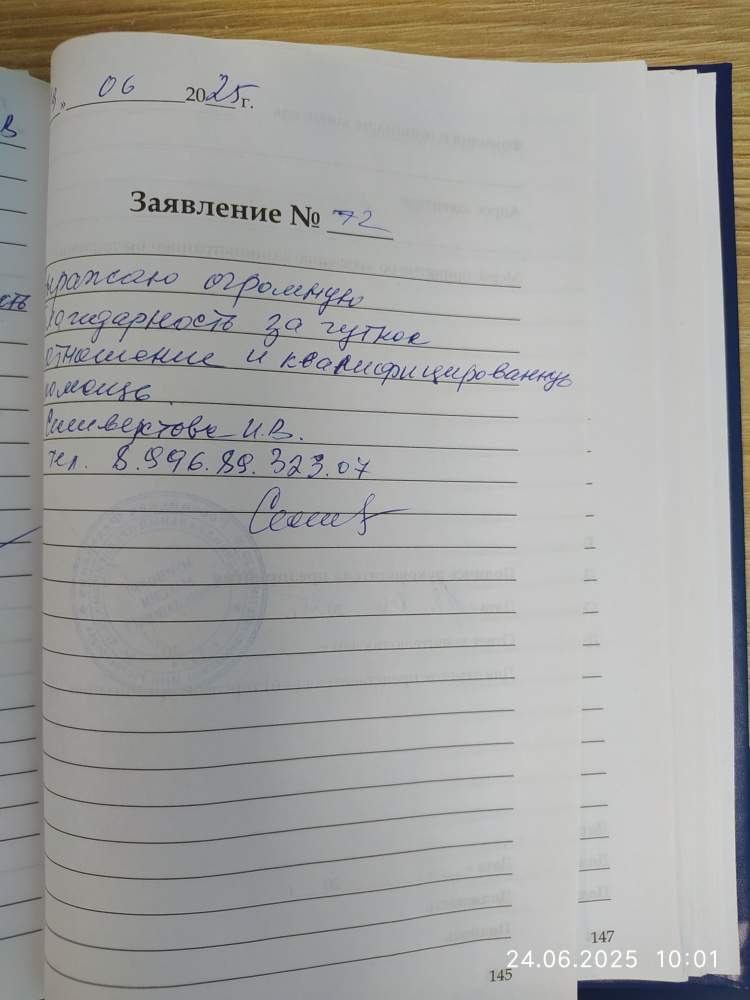 " 06 2025 г.
Заявление № 72
ыражаю огромную
лагодарность за чуткое
отношение и квалифицированную
омощь.
Селивёрстова И.В.
тел. 8.996.89.323.07
147
145
24.06.2025 10:01